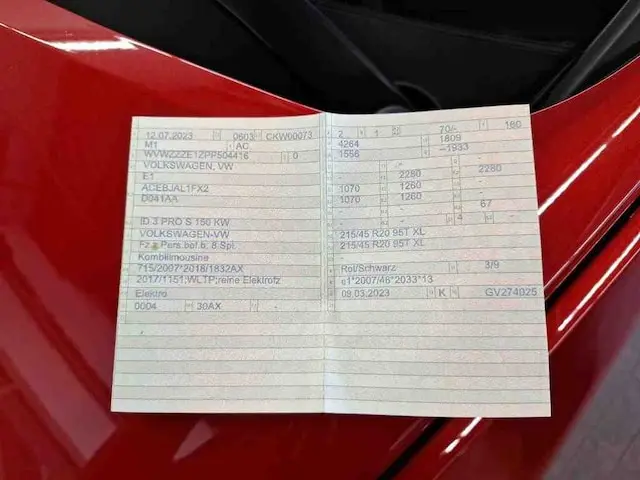 12.07.2023 0603 CKW00073
M1 AC
WVWZZZE1ZPP504416 0
VOLKSWAGEN, VW
E1
ACEBJAL1FX2
D041AA
ID.3 PRO S 150 KW
VOLKSWAGEN-VW
Fz.z.Pers.bef.b. 8 Spl.
Kombilimousine
715/2007*2018/1832AX
2017/1151;WLTP;reine Elektrofz
Elektro
0004 30AX -
2 1 70/- 160
4264 1809
1556 -1933
- - 2280 2280
1070 1260 -
1070 1260 -
- - - 67
- - 4 -
215/45 R20 95T XL
215/45 R20 95T XL
Rot/Schwarz 3/9
e1*2007/46*2033*13
09.03.2023 K GV274025